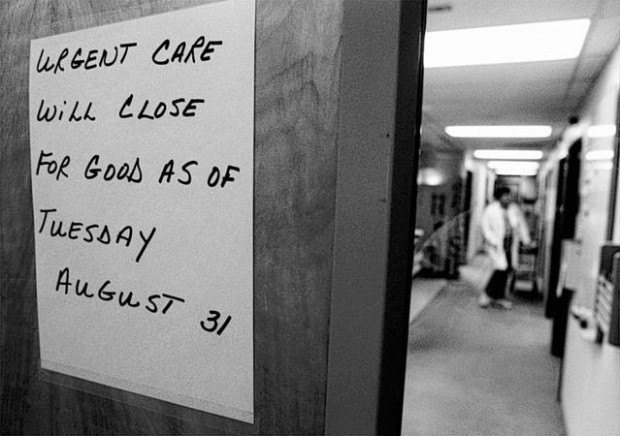 URGENT CARE
WILL CLOSE
FOR GOOD AS OF
TUESDAY
AUGUST 31